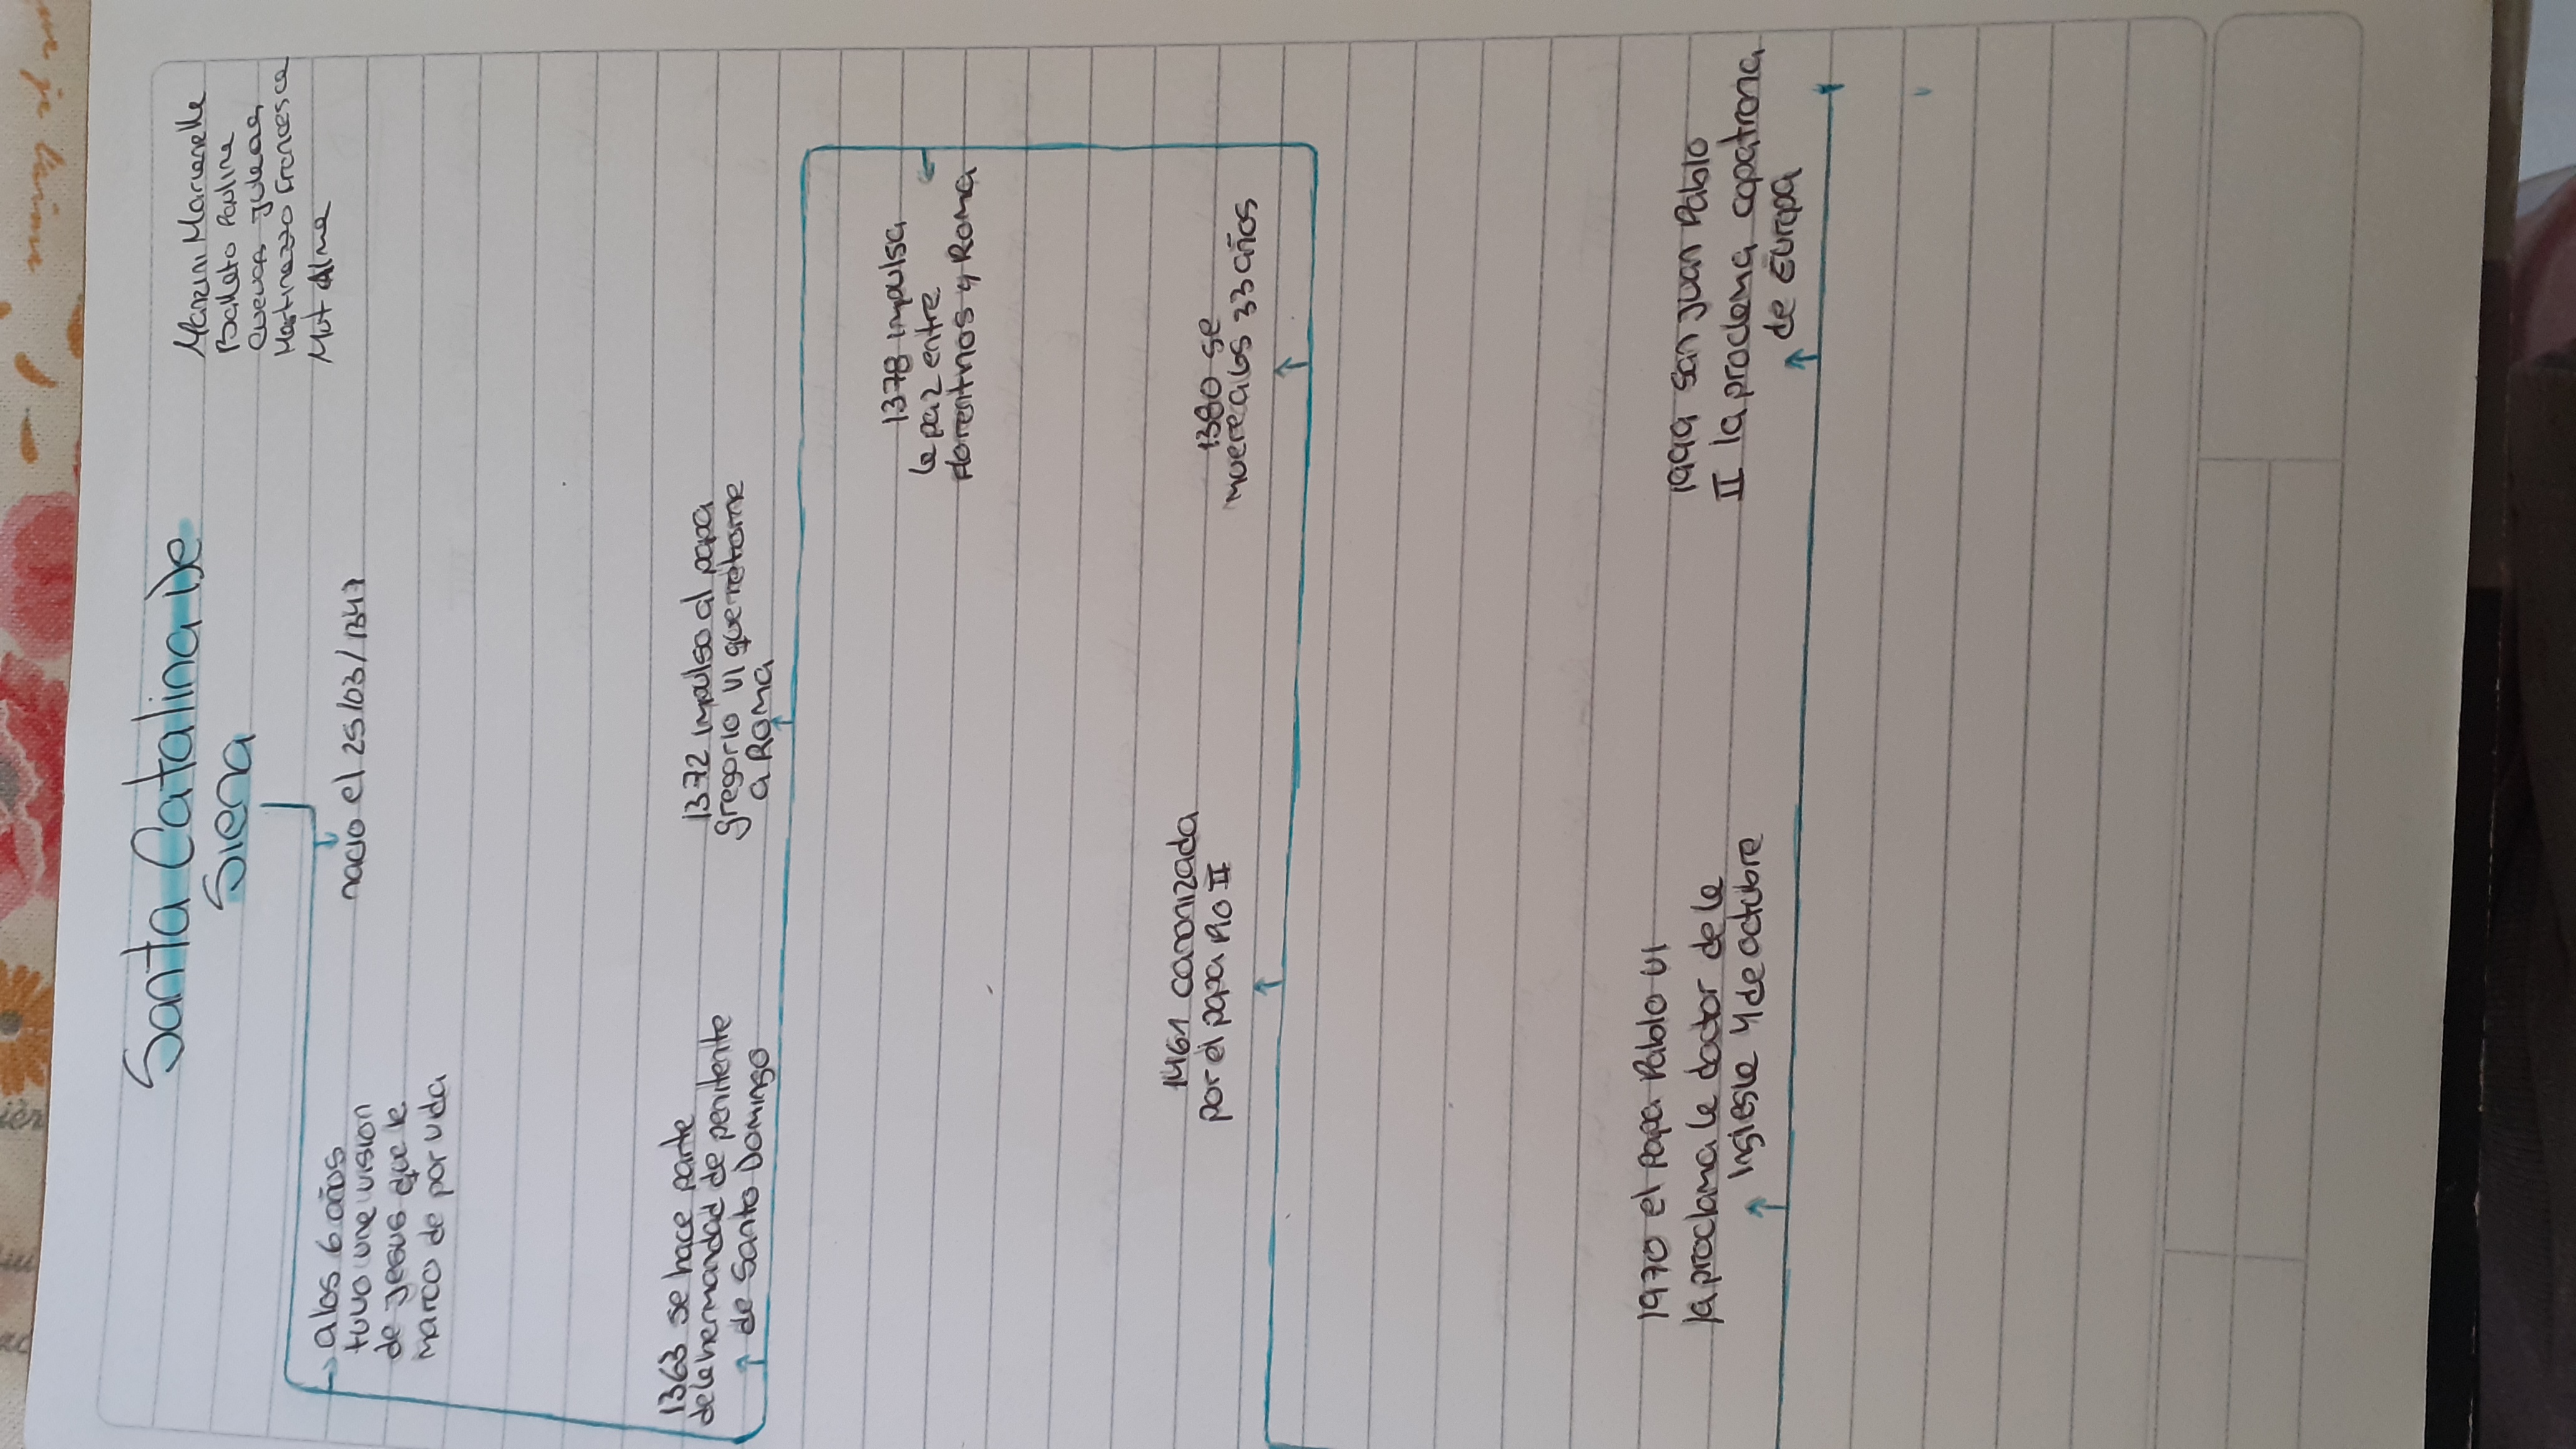 Santa Catalina De
Siena
Manzini Marianella
Balleto Pauline
Cuevas Juleas
Mastinazzo Francesca
Mut Alma
nacio el 25/03/1347
a los 6 años
tuvo una vision
de Jesus que le
marco de por vida
1363 se hace parte
de la hermandad de penitente
de Santo Domingo
1372 impulso al papa
gregorio VI que retorne
a Roma
1378 impulsa
la paz entre
florentinos y Roma
1380 se
muere a los 33 años
1461 canonizada
por el papa Pio II
1970 el Papa Pablo VI
la proclama la doctor de la
Iglesia 4 de octubre
1999 san Juan Pablo
II la proclama copatrona
de Europa